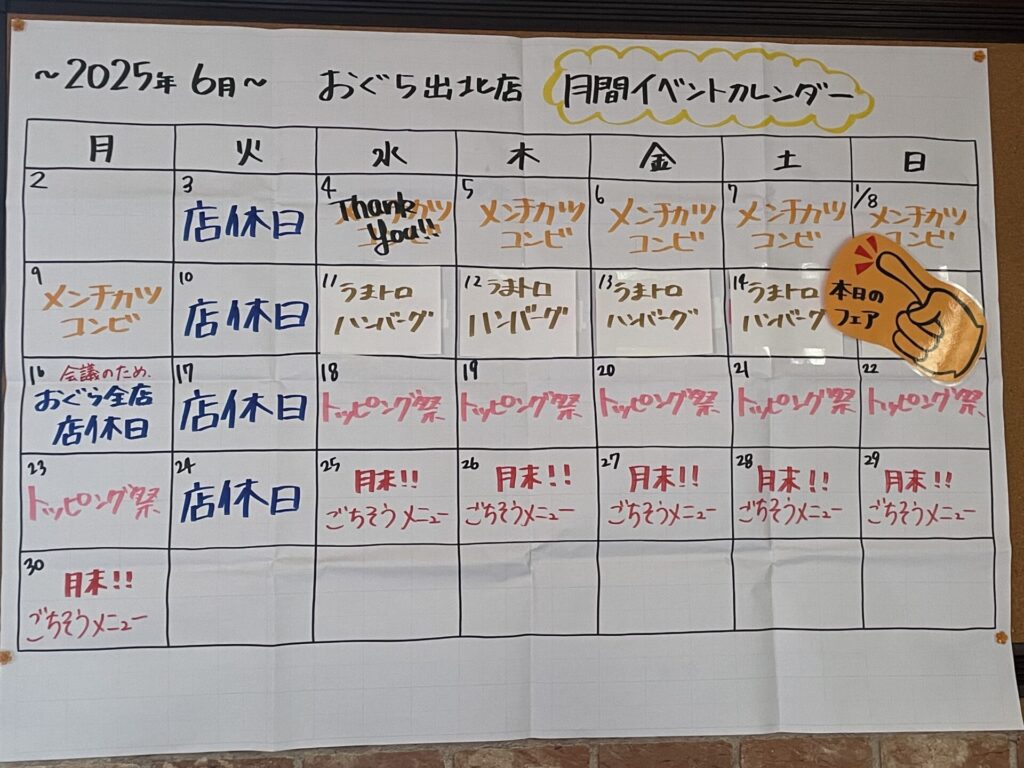 ～2025年 6月～ おぐら出北店 月間イベントカレンダー
月 火 水 木 金 土 日
2
3
店休日
4
Thank
You!!
5
メンチカツ
コンビ
6
メンチカツ
コンビ
7
メンチカツ
コンビ
1/8
メンチカツ
コンビ
9
メンチカツ
コンビ
10
店休日
11 うまトロ
ハンバーグ
12 うまトロ
ハンバーグ
13 うまトロ
ハンバーグ
14 うまトロ
ハンバーグ
本日の
フェア
16 会議のため、
おぐら全店
店休日
17
店休日
18
トッピング祭
19
トッピング祭
20
トッピング祭
21
トッピング祭
22
トッピング祭
23
トッピング祭
24
店休日
25
月末!!
ごちそうメニュー
26
月末!!
ごちそうメニュー
27
月末!!
ごちそうメニュー
28
月末!!
ごちそうメニュー
29
月末!!
ごちそうメニュー
30
月末!!
ごちそうメニュー